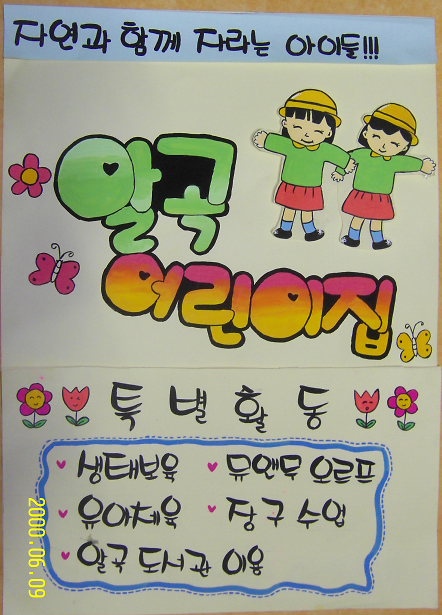 자연과 함께 자라는 아이들!!!
알곡
어린이집
특별활동
♥ 생태보육 ♥ 뮤앤무 오르프
♥ 유아체육 ♥ 장구 수업
♥ 알곡 도서관 이용
2000.06.09